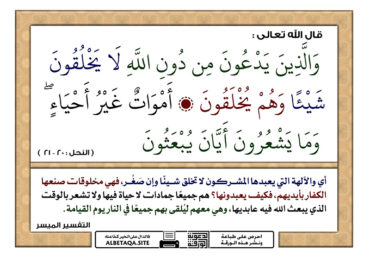 قال الله تعالى :
وَالَّذِينَ يَدْعُونَ مِن دُونِ اللَّهِ لَا يَخْلُقُونَ
شَيْئًا وَهُمْ يُخْلَقُونَ ۞ أَمْوَاتٌ غَيْرُ أَحْيَاءٍ ۖ
وَمَا يَشْعُرُونَ أَيَّانَ يُبْعَثُونَ
( النحل : ٢٠ - ٢١ )
أي والآلهة التي يعبدها المشركون لا تخلق شيئًا وإن صَغُر، فهي مخلوقات صنعها
الكفار بأيديهم، فكيف يعبدونها؟ هم جميعًا جمادات لا حياة فيها ولا تشعر بالوقت
الذي يبعث الله فيه عابديها، وهي معهم ليُلقى بهم جميعًا في النار يوم القيامة.
التفسير الميسر
احرص على طباعة
ونشر هذه الورقة
فالدال على الخير كفاعله
ALBETAQA.SITE